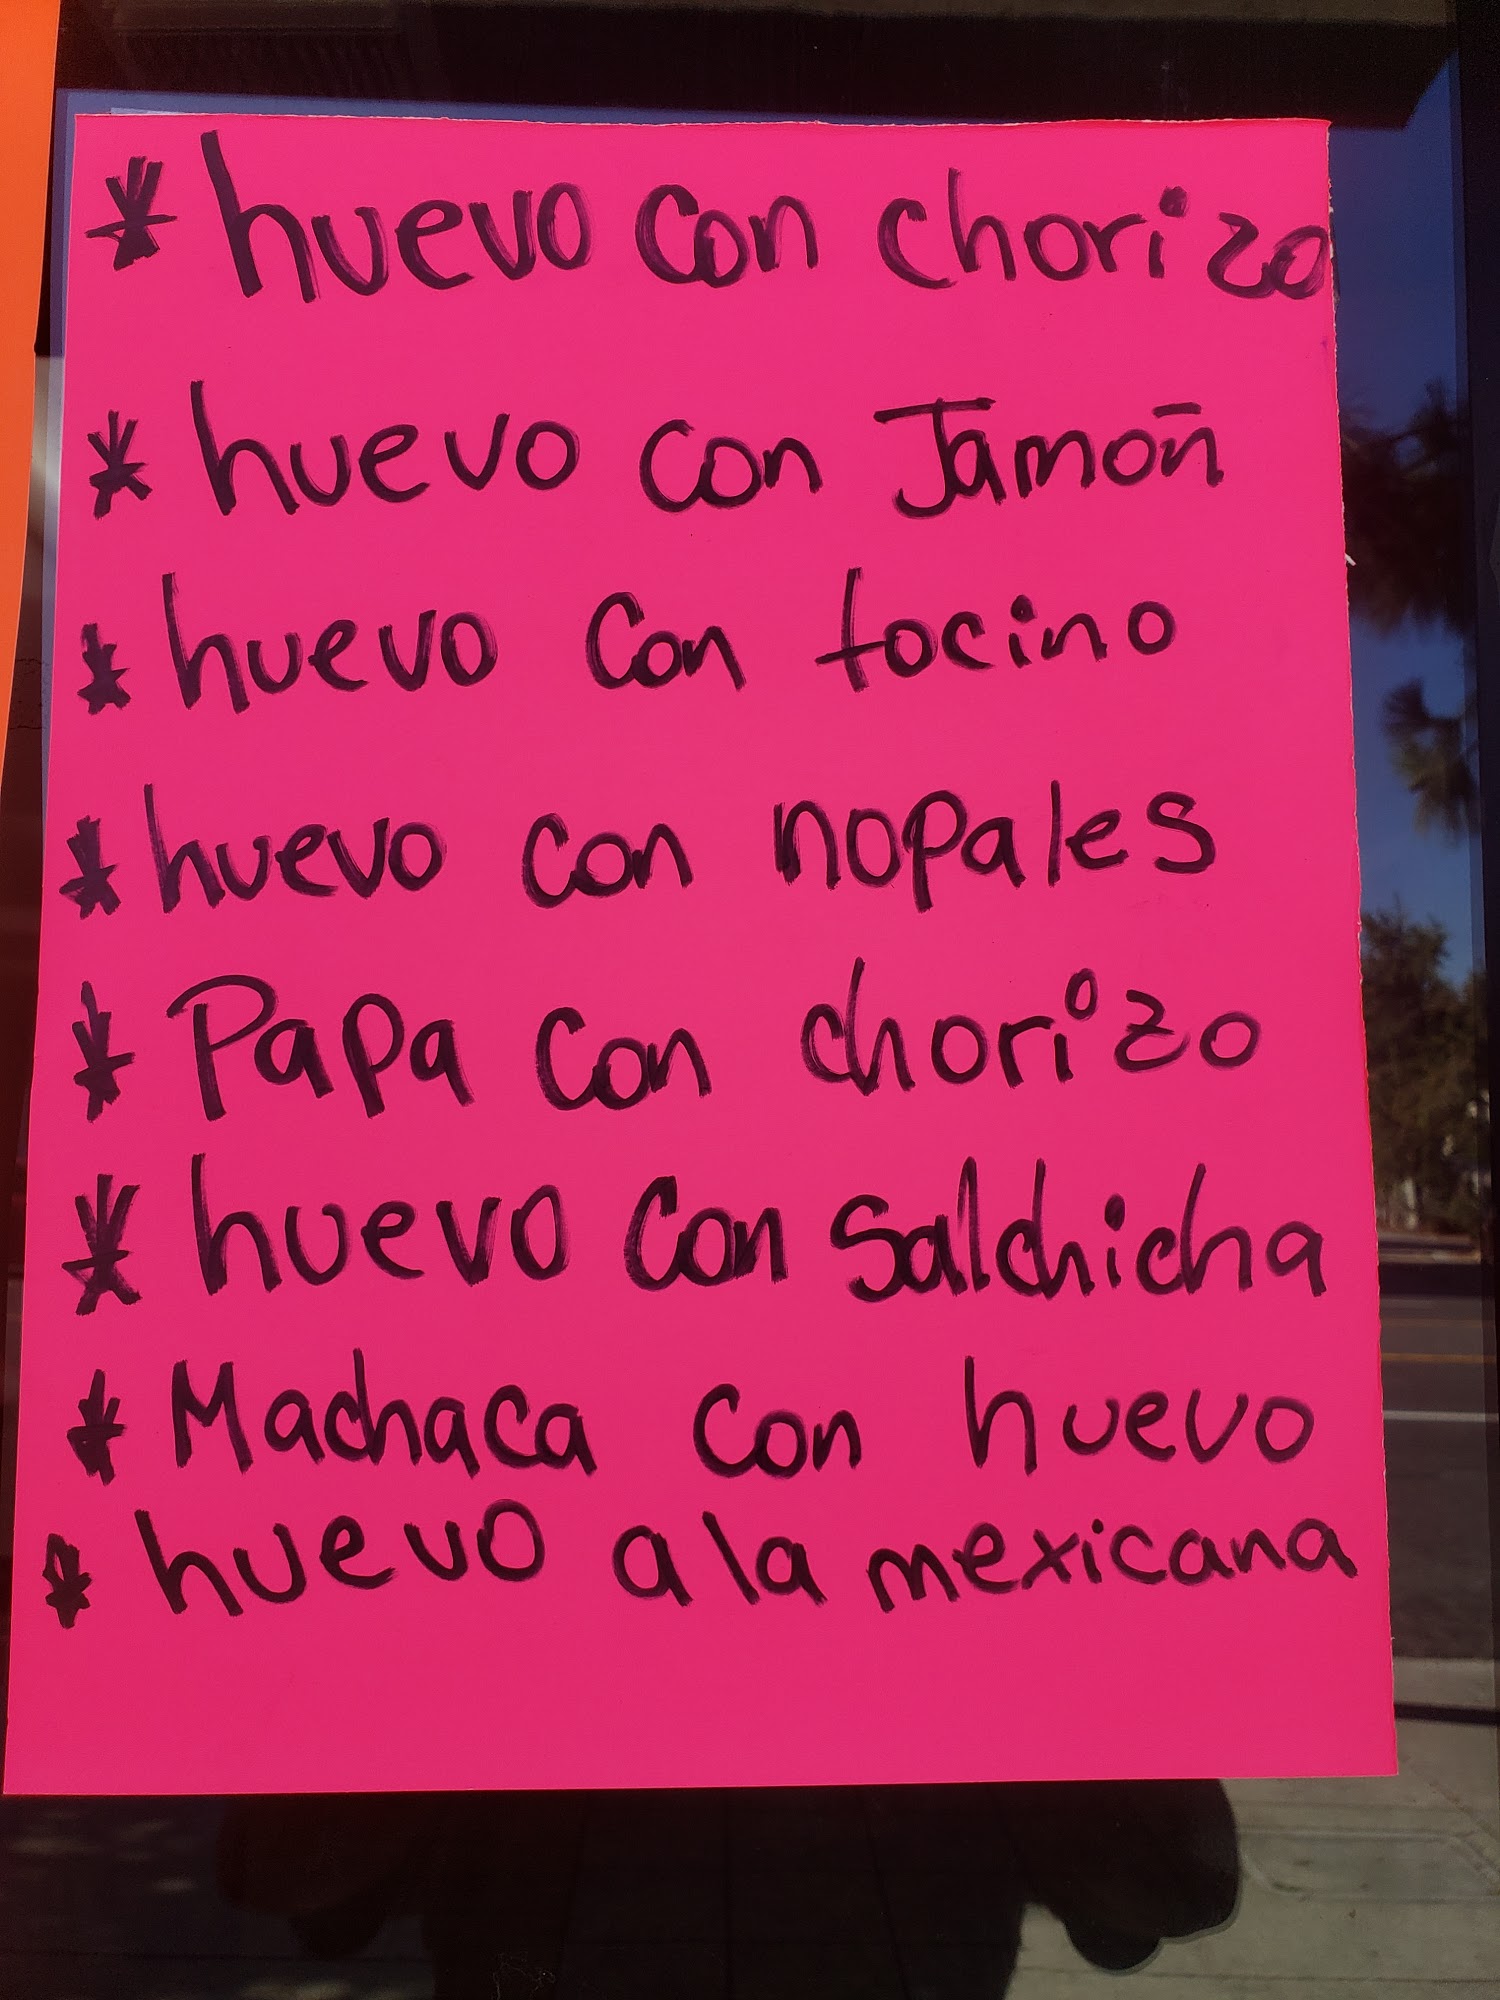 * huevo con chorizo
* huevo con Jamoñ
* huevo con tocino
* huevo con nopales
* Papa con chorizo
* huevo con Salchicha
* Machaca con huevo
* huevo a la mexicana